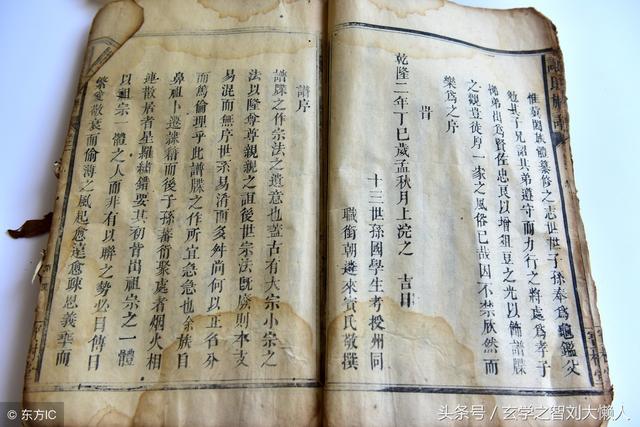 惟我闔族體纂修之志世世子孫奉為龜鑑父
勉其子兄詔其弟遵守而力行之將處為孝子
悌弟出為賢佐忠良以增俎豆之光以飾譜牒
之觀豈徒序一家之風俗已哉因不禁欣然而
樂為之序
時
乾隆二年丁巳歲孟秋月上浣之 吉日
十三世孫國學生考授州同
職銜朝遴來賓氏敬撰
譜序
譜牒之作宗法之遺意也蓋古有大宗小宗之
法以隆尊尊親親之誼後世宗法既廢則本支
易混而無序世系易淆而多舛尚何以正名分
而篤倫理乎此譜牒之作所宜急急也余族自
鼻祖卜遷隸籍而後子孫蕃衍聚處者烟火相
連散居者星羅繡錯要其初皆出祖宗之一體
以祖宗一體之人而非有以聯之勢必日傳日
繁愛敬衰而偷薄之風起愈遠愈疎恩義薄而
© 东方IC
头条号 / 玄学之智刘大懒人